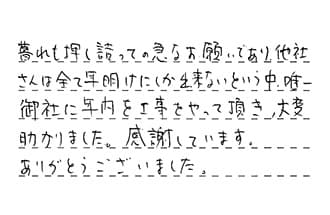 暮れも押し詰っての急なお願いであり、他社
さんは全て年明けにしか出来ないという中、唯一
御社に年内を工事をやって頂き、大変
助かりました。感謝しています。
ありがとうございました。